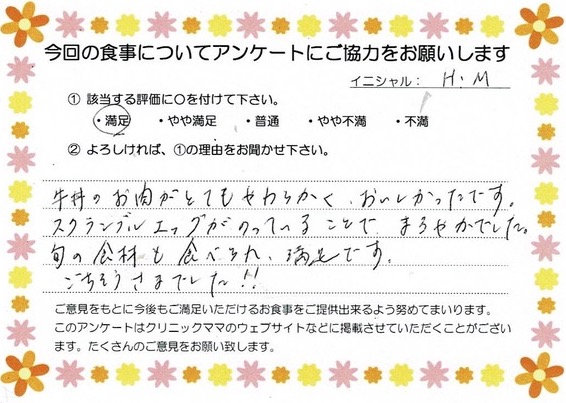 今回の食事についてアンケートにご協力をお願いします
イニシャル： H.M
① 該当する評価に〇を付けて下さい。
・満足 ・やや満足 ・普通 ・やや不満 ・不満
② よろしければ、①の理由をお聞かせ下さい。
牛丼のお肉がとてもやわらかく、おいしかったです。
スクランブルエッグがのっていることで まろやかでした。
旬の食材も食べられ、満足です。
ごちそうさまでした!!
ご意見をもとに今後もご満足いただけるお食事をご提供出来るよう努めてまいります。
このアンケートはクリニックママのウェブサイトなどに掲載させていただくことがござい
ます。たくさんのご意見をお願い致します。